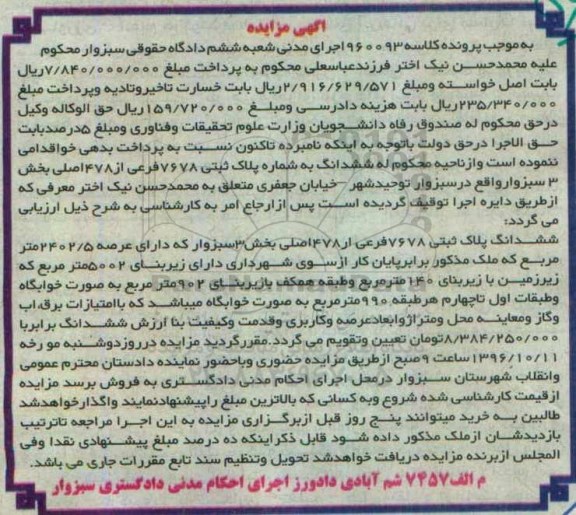 آگهی مزایده
به موجب پرونده کلاسه ۹۶۰۰۹۳ اجرای مدنی شعبه ششم دادگاه حقوقی سبزوار محکوم
علیه محمدحسن نیک اختر فرزندعباسعلی محکوم به پرداخت مبلغ ۷/۸۴۰/۰۰۰/۰۰۰ریال
بابت اصل خواسته ومبلغ ۲/۹۱۶/۶۲۹/۵۷۱ریال بابت خسارت تاخیروتادیه وپرداخت مبلغ
۲۳۵/۳۴۰/۰۰۰ریال بابت هزینه دادرسی ومبلغ ۱۵۹/۷۲۰/۰۰۰ریال حق الوکاله وکیل
درحق محکوم له صندوق رفاه دانشجویان وزارت علوم تحقیقات وفناوری ومبلغ ۵درصدبابت
حق الاجرا درحق دولت باتوجه به اینکه نامبرده تاکنون نسبت به پرداخت بدهی خواقدامی
ننموده است وازناحیه محکوم له ششدانگ به شماره پلاک ثبتی ۷۶۷۸فرعی از۴۷۸اصلی بخش
۳ سبزوارواقع درسبزوار توحیدشهر - خیابان جعفری متعلق به محمدحسن نیک اختر معرفی که
ازطریق دایره اجرا توقیف گردیده است پس ازارجاع امر به کارشناسی به شرح ذیل ارزیابی
می گردد:
ششدانگ پلاک ثبتی ۷۶۷۸فرعی از۴۷۸اصلی بخش۳سبزوار که دارای عرصه ۲۴۰۲/۵متر
مربع که ملک مذکور برابرپایان کار ازسوی شهرداری دارای زیربنای ۵۰۰۲متر مربع که
زیرزمین با زیربنای ۱۴۰مترمربع وطبقه همکف بازیربنای ۹۰۲متر مربع به صورت خوابگاه
وطبقات اول تاچهارم هرطبقه ۹۹۰مترمربع به صورت خوابگاه میباشد که باامتیازات برق،اب
وگاز ومعاینه محل ومتراژوابعادعرصه وکاربری وقدمت وکیفیت بنا ارزش ششدانگ برابربا
۸/۳۸۴/۲۵۰/۰۰۰تومان تعیین وتقویم می گردد.مقررگردید مزایده درروزدوشنبه مو رخه
۱۳۹۶/۱۰/۱۱ساعت ۹صبح ازطریق مزایده حضوری وباحضور نماینده دادستان محترم عمومی
وانقلاب شهرستان سبزوار درمحل اجرای احکام مدنی دادگستری به فروش برسد مزایده
ازقیمت کارشناسی شده شروع وبه کسانی که بالاترین مبلغ راپیشنهادنمایند واگذارخواهدشد
طالبین به خرید میتوانند پنج روز قبل ازبرگزاری مزایده به این اجرا مراجعه تاترتیب
بازدیدشان ازملک مذکور داده شود قابل ذکراینکه ده درصد مبلغ پیشنهادی نقدا وفی
المجلس ازبرنده مزایده دریافت خواهدشد تحویل وتنظیم سند تابع مقررات جاری می باشد.
م الف۷۴۵۷ شم آبادی دادورز اجرای احکام مدنی دادگستری سبزوار